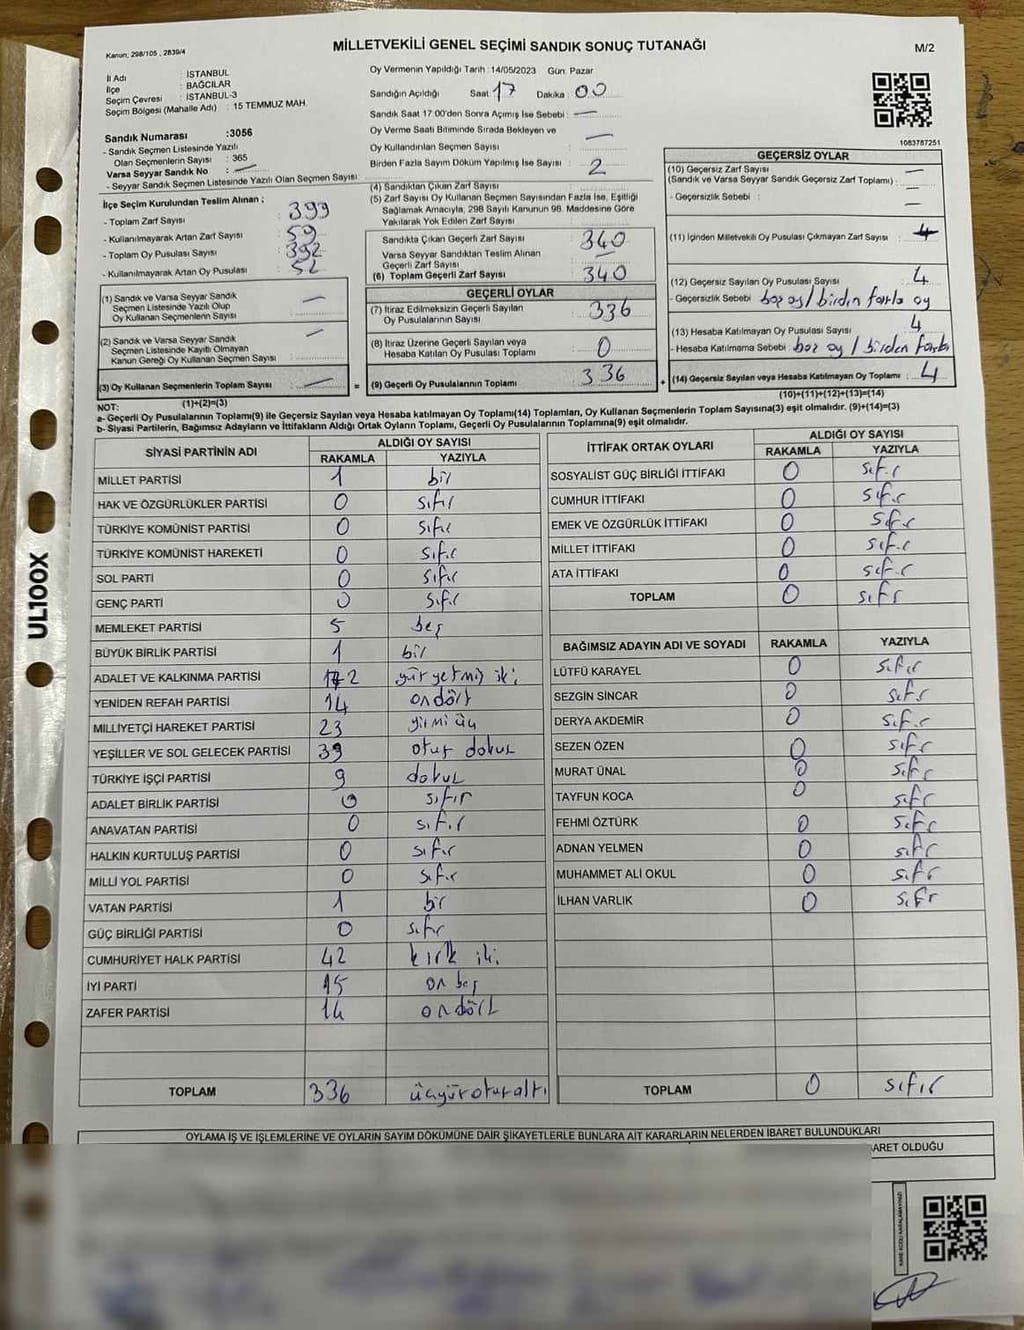 Kanun: 298/105 , 2839/4
MİLLETVEKİLİ GENEL SEÇİMİ SANDIK SONUÇ TUTANAĞI
M/2
İl Adı : İSTANBUL
İlçe : BAĞCILAR
Seçim Çevresi : İSTANBUL-3
Seçim Bölgesi (Mahalle Adı) : 15 TEMMUZ MAH.
Sandık Numarası :3056
- Sandık Seçmen Listesinde Yazılı
Olan Seçmenlerin Sayısı : 365
Varsa Seyyar Sandık No : —
- Seyyar Sandık Seçmen Listesinde Yazılı Olan Seçmen Sayısı:
Oy Vermenin Yapıldığı Tarih :14/05/2023 Gün: Pazar
Sandığın Açıldığı Saat : 17 Dakika : 00
Sandık Saat 17:00'den Sonra Açımış İse Sebebi : —
Oy Verme Saati Bitiminde Sırada Bekleyen ve
Oy Kullandırılan Seçmen Sayısı : —
Birden Fazla Sayım Döküm Yapılmış İse Sayısı : 2
1083787251
İlçe Seçim Kurulundan Teslim Alınan ;
- Toplam Zarf Sayısı : 399
- Kullanılmayarak Artan Zarf Sayısı : 59
- Toplam Oy Pusulası Sayısı : 392
- Kullanılmayarak Artan Oy Pusulası : 52
(1) Sandık ve Varsa Seyyar Sandık
Seçmen Listesinde Yazılı Olup
Oy Kullanan Seçmenlerin Sayısı : —
(2) Sandık ve Varsa Seyyar Sandık
Seçmen Listesinde Kayıtlı Olmayan
Kanun Gereği Oy Kullanan Seçmen Sayısı : —
(3) Oy Kullanan Seçmenlerin Toplam Sayısı : — =
(1)+(2)=(3)
(4) Sandıktan Çıkan Zarf Sayısı :
(5) Zarf Sayısı Oy Kullanan Seçmen Sayısından Fazla İse, Eşitliği
Sağlamak Amacıyla, 298 Sayılı Kanunun 98. Maddesine Göre
Yakılarak Yok Edilen Zarf Sayısı :
Sandıkta Çıkan Geçerli Zarf Sayısı : 340
Varsa Seyyar Sandıktan Teslim Alınan
Geçerli Zarf Sayısı : —
(6) Toplam Geçerli Zarf Sayısı : 340
GEÇERLİ OYLAR
(7) İtiraz Edilmeksizin Geçerli Sayılan
Oy Pusulalarının Sayısı : 336
(8) İtiraz Üzerine Geçerli Sayılan veya
Hesaba Katılan Oy Pusulası Toplamı : 0
(9) Geçerli Oy Pusulalarının Toplamı : 336 +
GEÇERSİZ OYLAR
(10) Geçersiz Zarf Sayısı : —
(Sandık ve Varsa Seyyar Sandık Geçersiz Zarf Toplamı) : —
- Geçersizlik Sebebi : —
(11) İçinden Milletvekili Oy Pusulası Çıkmayan Zarf Sayısı :
(12) Geçersiz Sayılan Oy Pusulası Sayısı : 4
- Geçersizlik Sebebi : boş oy / birdin fazla oy
(13) Hesaba Katılmayan Oy Pusulası Sayısı : 4
- Hesaba Katılmama Sebebi : boş oy / birden fazla
(14) Geçersiz Sayılan veya Hesaba Katılmayan Oy Toplamı : 4
(10)+(11)+(12)+(13)=(14)
NOT:
a- Geçerli Oy Pusulalarının Toplamı(9) ile Geçersiz Sayılan veya Hesaba katılmayan Oy Toplamı(14) Toplamları, Oy Kullanan Seçmenlerin Toplam Sayısına(3) eşit olmalıdır. (9)+(14)=(3)
b- Siyasi Partilerin, Bağımsız Adayların ve İttifakların Aldığı Oyların Toplamı, Geçerli Oy Pusulalarının Toplamına(9) eşit olmalıdır.
SİYASİ PARTİNİN ADI ALDIĞI OY SAYISI
RAKAMLA YAZIYLA
MİLLET PARTİSİ 1 bir
HAK VE ÖZGÜRLÜKLER PARTİSİ 0 sıfır
TÜRKİYE KOMÜNİST PARTİSİ 0 sıfır
TÜRKİYE KOMÜNİST HAREKETİ 0 sıfır
SOL PARTİ 0 sıfır
GENÇ PARTİ 0 sıfır
MEMLEKET PARTİSİ 5 beş
BÜYÜK BİRLİK PARTİSİ 1 bir
ADALET VE KALKINMA PARTİSİ 172 yüz yetmiş iki
YENİDEN REFAH PARTİSİ 14 ondört
MİLLİYETÇİ HAREKET PARTİSİ 23 yirmi üç
YEŞİLLER VE SOL GELECEK PARTİSİ 39 otuz dokuz
TÜRKİYE İŞÇİ PARTİSİ 9 dokuz
ADALET BİRLİK PARTİSİ 0 sıfır
ANAVATAN PARTİSİ 0 sıfır
HALKIN KURTULUŞ PARTİSİ 0 sıfır
MİLLİ YOL PARTİSİ 0 sıfır
VATAN PARTİSİ 1 bir
GÜÇ BİRLİĞİ PARTİSİ 0 sıfır
CUMHURİYET HALK PARTİSİ 42 kırk iki
İYİ PARTİ 15 on beş
ZAFER PARTİSİ 14 ondört
TOPLAM 336 üçyüzotuzaltı
İTTİFAK ORTAK OYLARI ALDIĞI OY SAYISI
RAKAMLA YAZIYLA
SOSYALİST GÜÇ BİRLİĞİ İTTİFAKI 0 sıfır
CUMHUR İTTİFAKI 0 sıfır
EMEK VE ÖZGÜRLÜK İTTİFAKI 0 sıfır
MİLLET İTTİFAKI 0 sıfır
ATA İTTİFAKI 0 sıfır
TOPLAM 0 sıfır
BAĞIMSIZ ADAYIN ADI VE SOYADI RAKAMLA YAZIYLA
LÜTFÜ KARAYEL 0 sıfır
SEZGİN SİNCAR 0 sıfır
DERYA AKDEMİR 0 sıfır
SEZEN ÖZEN 0 sıfır
MURAT ÜNAL 0 sıfır
TAYFUN KOCA 0 sıfır
FEHMİ ÖZTÜRK 0 sıfır
ADNAN YELMEN 0 sıfır
MUHAMMET ALİ OKUL 0 sıfır
İLHAN VARLIK 0 sıfır
TOPLAM 0 sıfır
OYLAMA İŞ VE İŞLEMLERİNE VE OYLARIN SAYIM DÖKÜMÜNE DAİR ŞİKAYETLERLE BUNLARA AİT KARARLARIN NELERDEN İBARET BULUNDUKLARI
ARET OLDUĞU
KARE KODU KARALAMAYINIZ!
UL100X